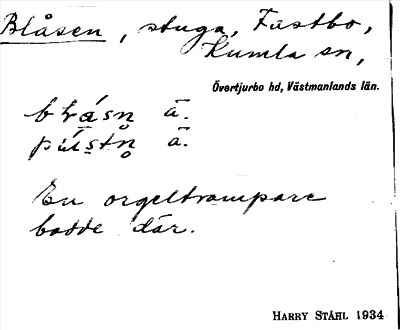 Blåsen, stuga, Fastbo,
Kumla sn,
Övertjurbo hd, Västmanlands län.
blåsn̥ ä.
pústn̥ ä.
En orgeltrampare
bodde där.
HARRY STÅHL 1934